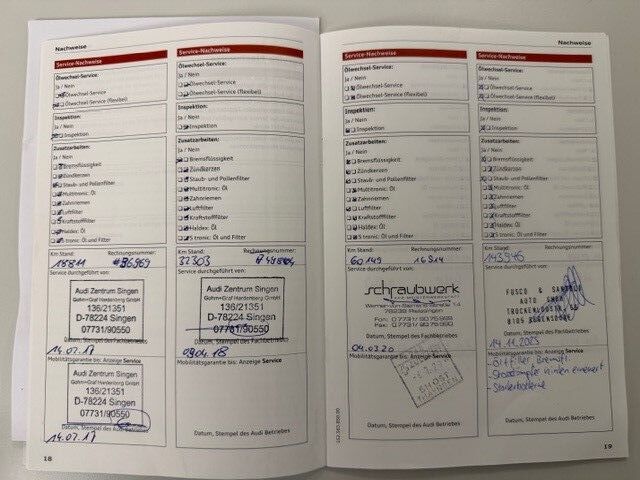 Nachweise
Service-Nachweise
Ölwechsel-Service:
Ja / Nein
Ölwechsel-Service
Ölwechsel-Service (flexibel)
Inspektion:
Ja / Nein
Inspektion
Zusatzarbeiten:
Ja / Nein
Bremsflüssigkeit
Zündkerzen
Staub- und Pollenfilter
Multitronic: Öl
Zahnriemen
Luftfilter
Kraftstofffilter
Haldex: Öl
S tronic: Öl und Filter
Km Stand: Rechnungsnummer:
Service durchgeführt von:
Audi Zentrum Singen
Gohm+Graf Hardenberg GmbH
136/21351
D-78224 Singen
07731/90550
Datum, Stempel des Fachbetriebes
14.07.17
Mobilitätsgarantie bis: Anzeige Service
Audi Zentrum Singen
Gohm+Graf Hardenberg GmbH
136/21351
D-78224 Singen
07731/90550
Datum, Stempel des Audi Betriebes
14.07.17
18
Service-Nachweise
Ölwechsel-Service:
Ja / Nein
Ölwechsel-Service
Ölwechsel-Service (flexibel)
Inspektion:
Ja / Nein
Inspektion
Zusatzarbeiten:
Ja / Nein
Bremsflüssigkeit
Zündkerzen
Staub- und Pollenfilter
Multitronic: Öl
Zahnriemen
Luftfilter
Kraftstofffilter
Haldex: Öl
S tronic: Öl und Filter
Km Stand: Rechnungsnummer:
32303
Service durchgeführt von:
Audi Zentrum Singen
Gohm+Graf Hardenberg GmbH
136/21351
D-78224 Singen
07731/90550
Datum, Stempel des Fachbetriebes
09.04.18
Mobilitätsgarantie bis: Anzeige Service
Datum, Stempel des Audi Betriebes
Service-Nachweise
Ölwechsel-Service:
Ja / Nein
Ölwechsel-Service
Ölwechsel-Service (flexibel)
Inspektion:
Ja / Nein
Inspektion
Zusatzarbeiten:
Ja / Nein
Bremsflüssigkeit
Zündkerzen
Staub- und Pollenfilter
Multitronic: Öl
Zahnriemen
Luftfilter
Kraftstofffilter
Haldex: Öl
S tronic: Öl und Filter
Km Stand: Rechnungsnummer:
60149 16914
Service durchgeführt von:
schraubwerk
Datum, Stempel des Fachbetriebes
04.03.20
Mobilitätsgarantie bis: Anzeige Service
Datum, Stempel des Audi Betriebes
Nachweise
Service-Nachweise
Ölwechsel-Service:
Ja / Nein
Ölwechsel-Service
Ölwechsel-Service (flexibel)
Inspektion:
Ja / Nein
Inspektion
Zusatzarbeiten:
Ja / Nein
Bremsflüssigkeit
Zündkerzen
Staub- und Pollenfilter
Multitronic: Öl
Zahnriemen
Luftfilter
Kraftstofffilter
Haldex: Öl
S tronic: Öl und Filter
Km Stand: Rechnungsnummer:
143946
Service durchgeführt von:
AUTO
8105 REGENSDORF
Datum, Stempel des Fachbetriebes
14.11.2023
Mobilitätsgarantie bis: Anzeige Service
- Stossdämpfer hinten erneuert
- Starterbatterie
Datum, Stempel des Audi Betriebes
19